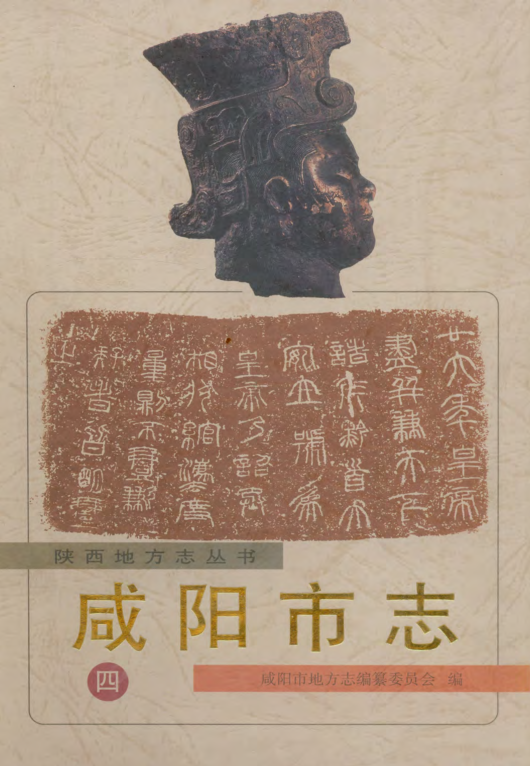 廿六年皇帝
盡并兼天下
諸侯黔首大
安立號為
皇帝乃詔丞
相狀綰灋度
量則不壹歉
疑者皆明壹
之
陕西地方志丛书
咸阳市志
四
咸阳市地方志编纂委员会 编